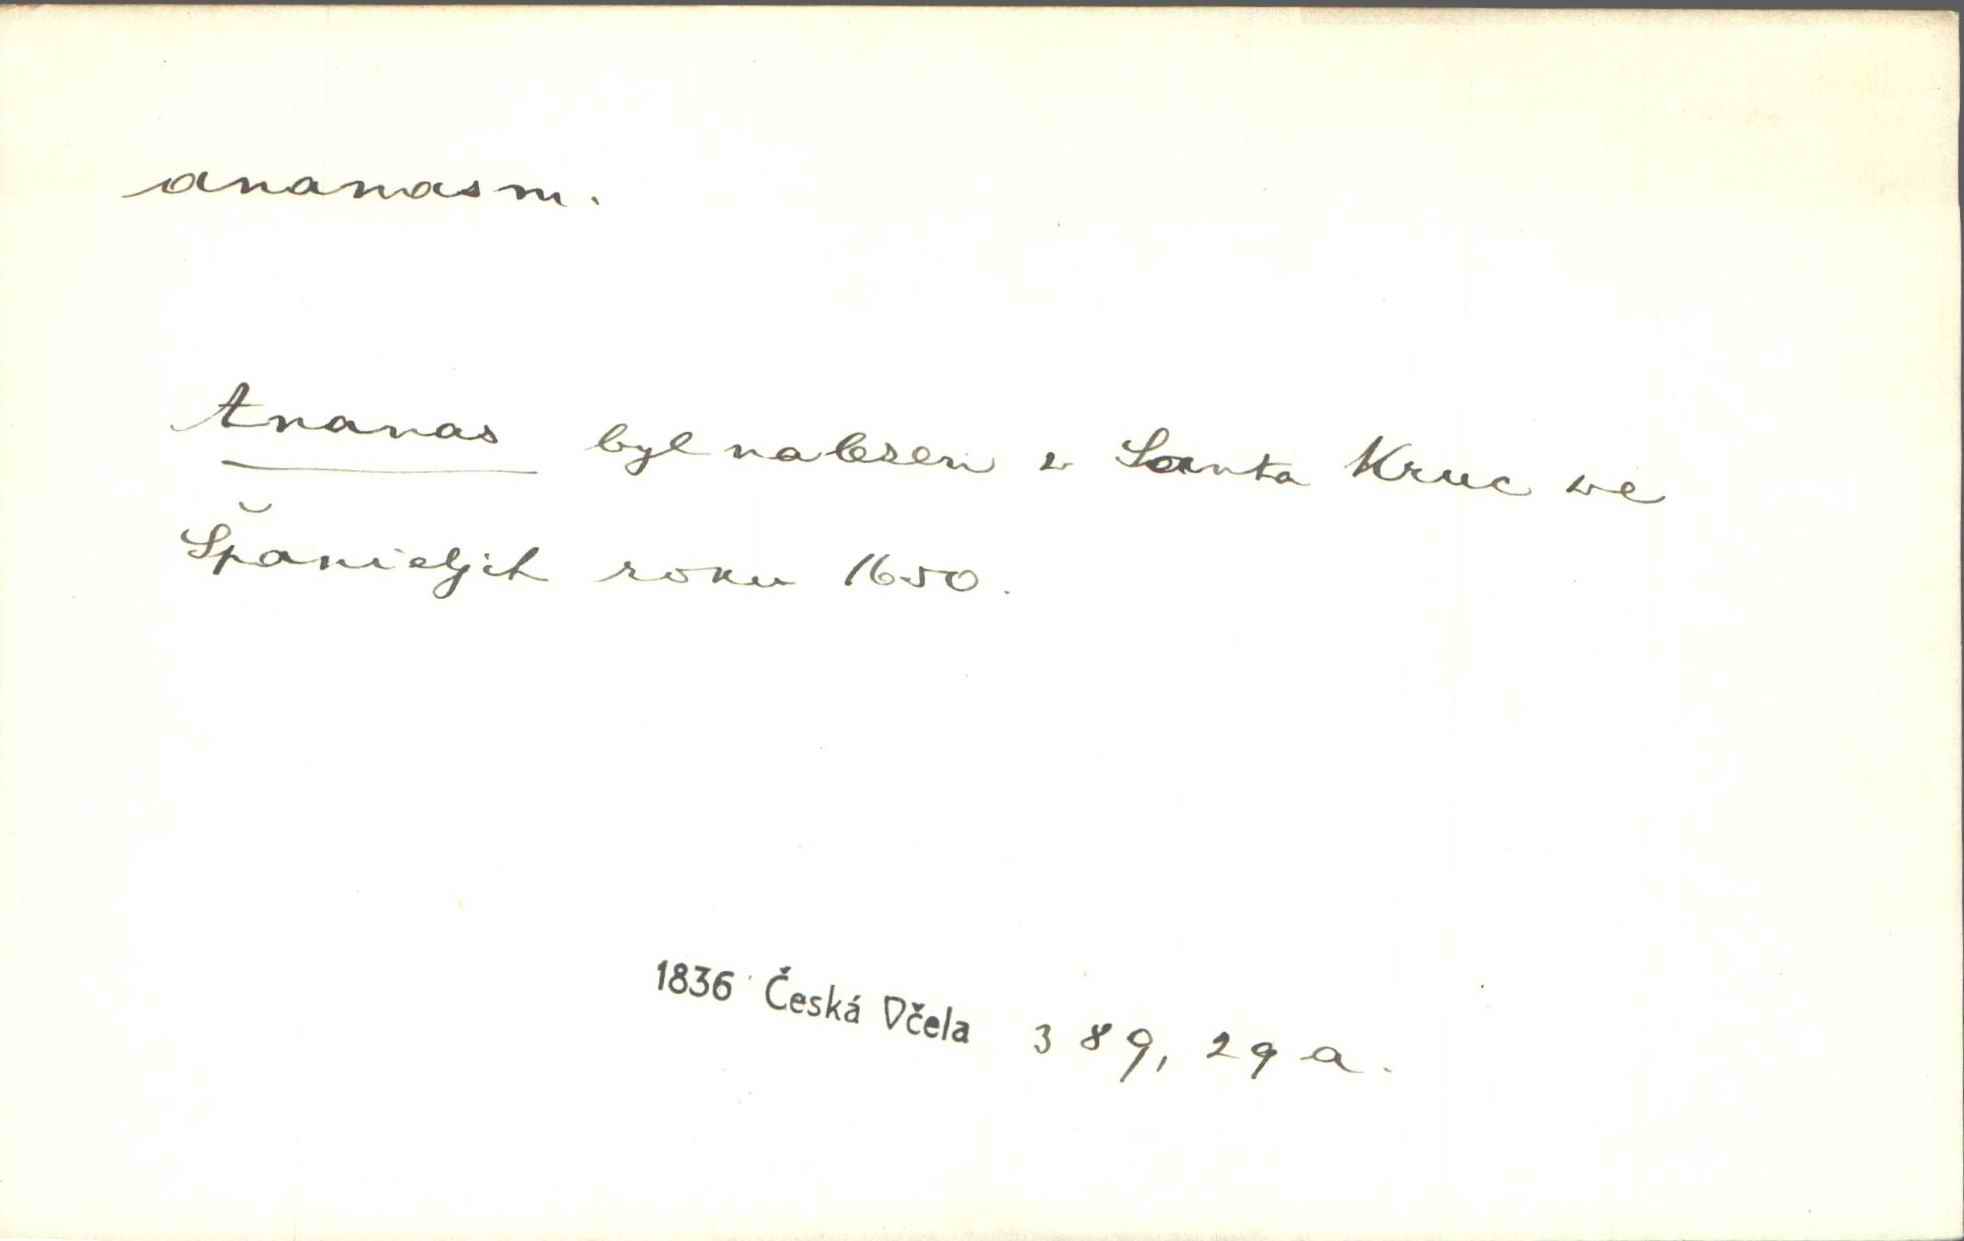 ananas m.
Ananas byl nalezen v Santa Kruc ve
Španieljch roku 1650.
1836 Česká Včela 389, 29 a.